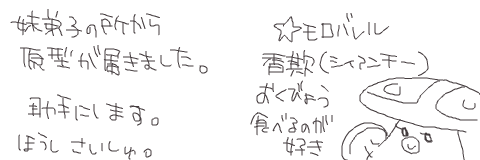 妹弟子の所から
原型が届きました。
助手にします。
ほうし さいしゅ。
☆モロバレル
香欺(シィアンチー)
おくびょう
食べるのが
好き